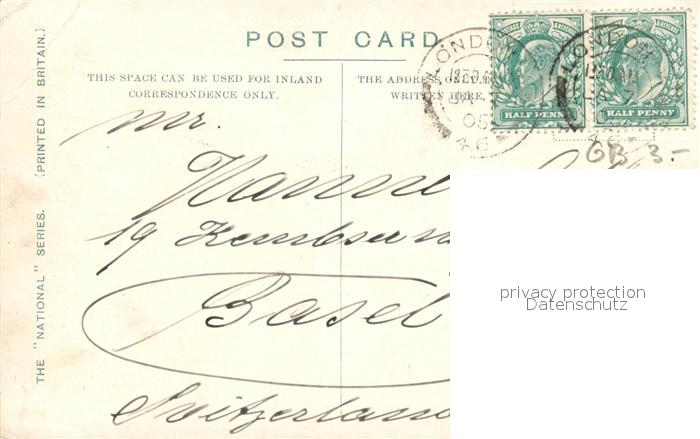 POST CARD
THIS SPACE CAN BE USED FOR INLAND
CORRESPONDENCE ONLY.
THE ADDRESS ONLY
WRITTEN HERE,
THE "NATIONAL" SERIES. (PRINTED IN BRITAIN.)
LONDON
05
46
HALF PENNY
LONDON
HALF PENNY
GB 3.-
Mr.
19
Basel
Switzerland
privacy protection
Datenschutz